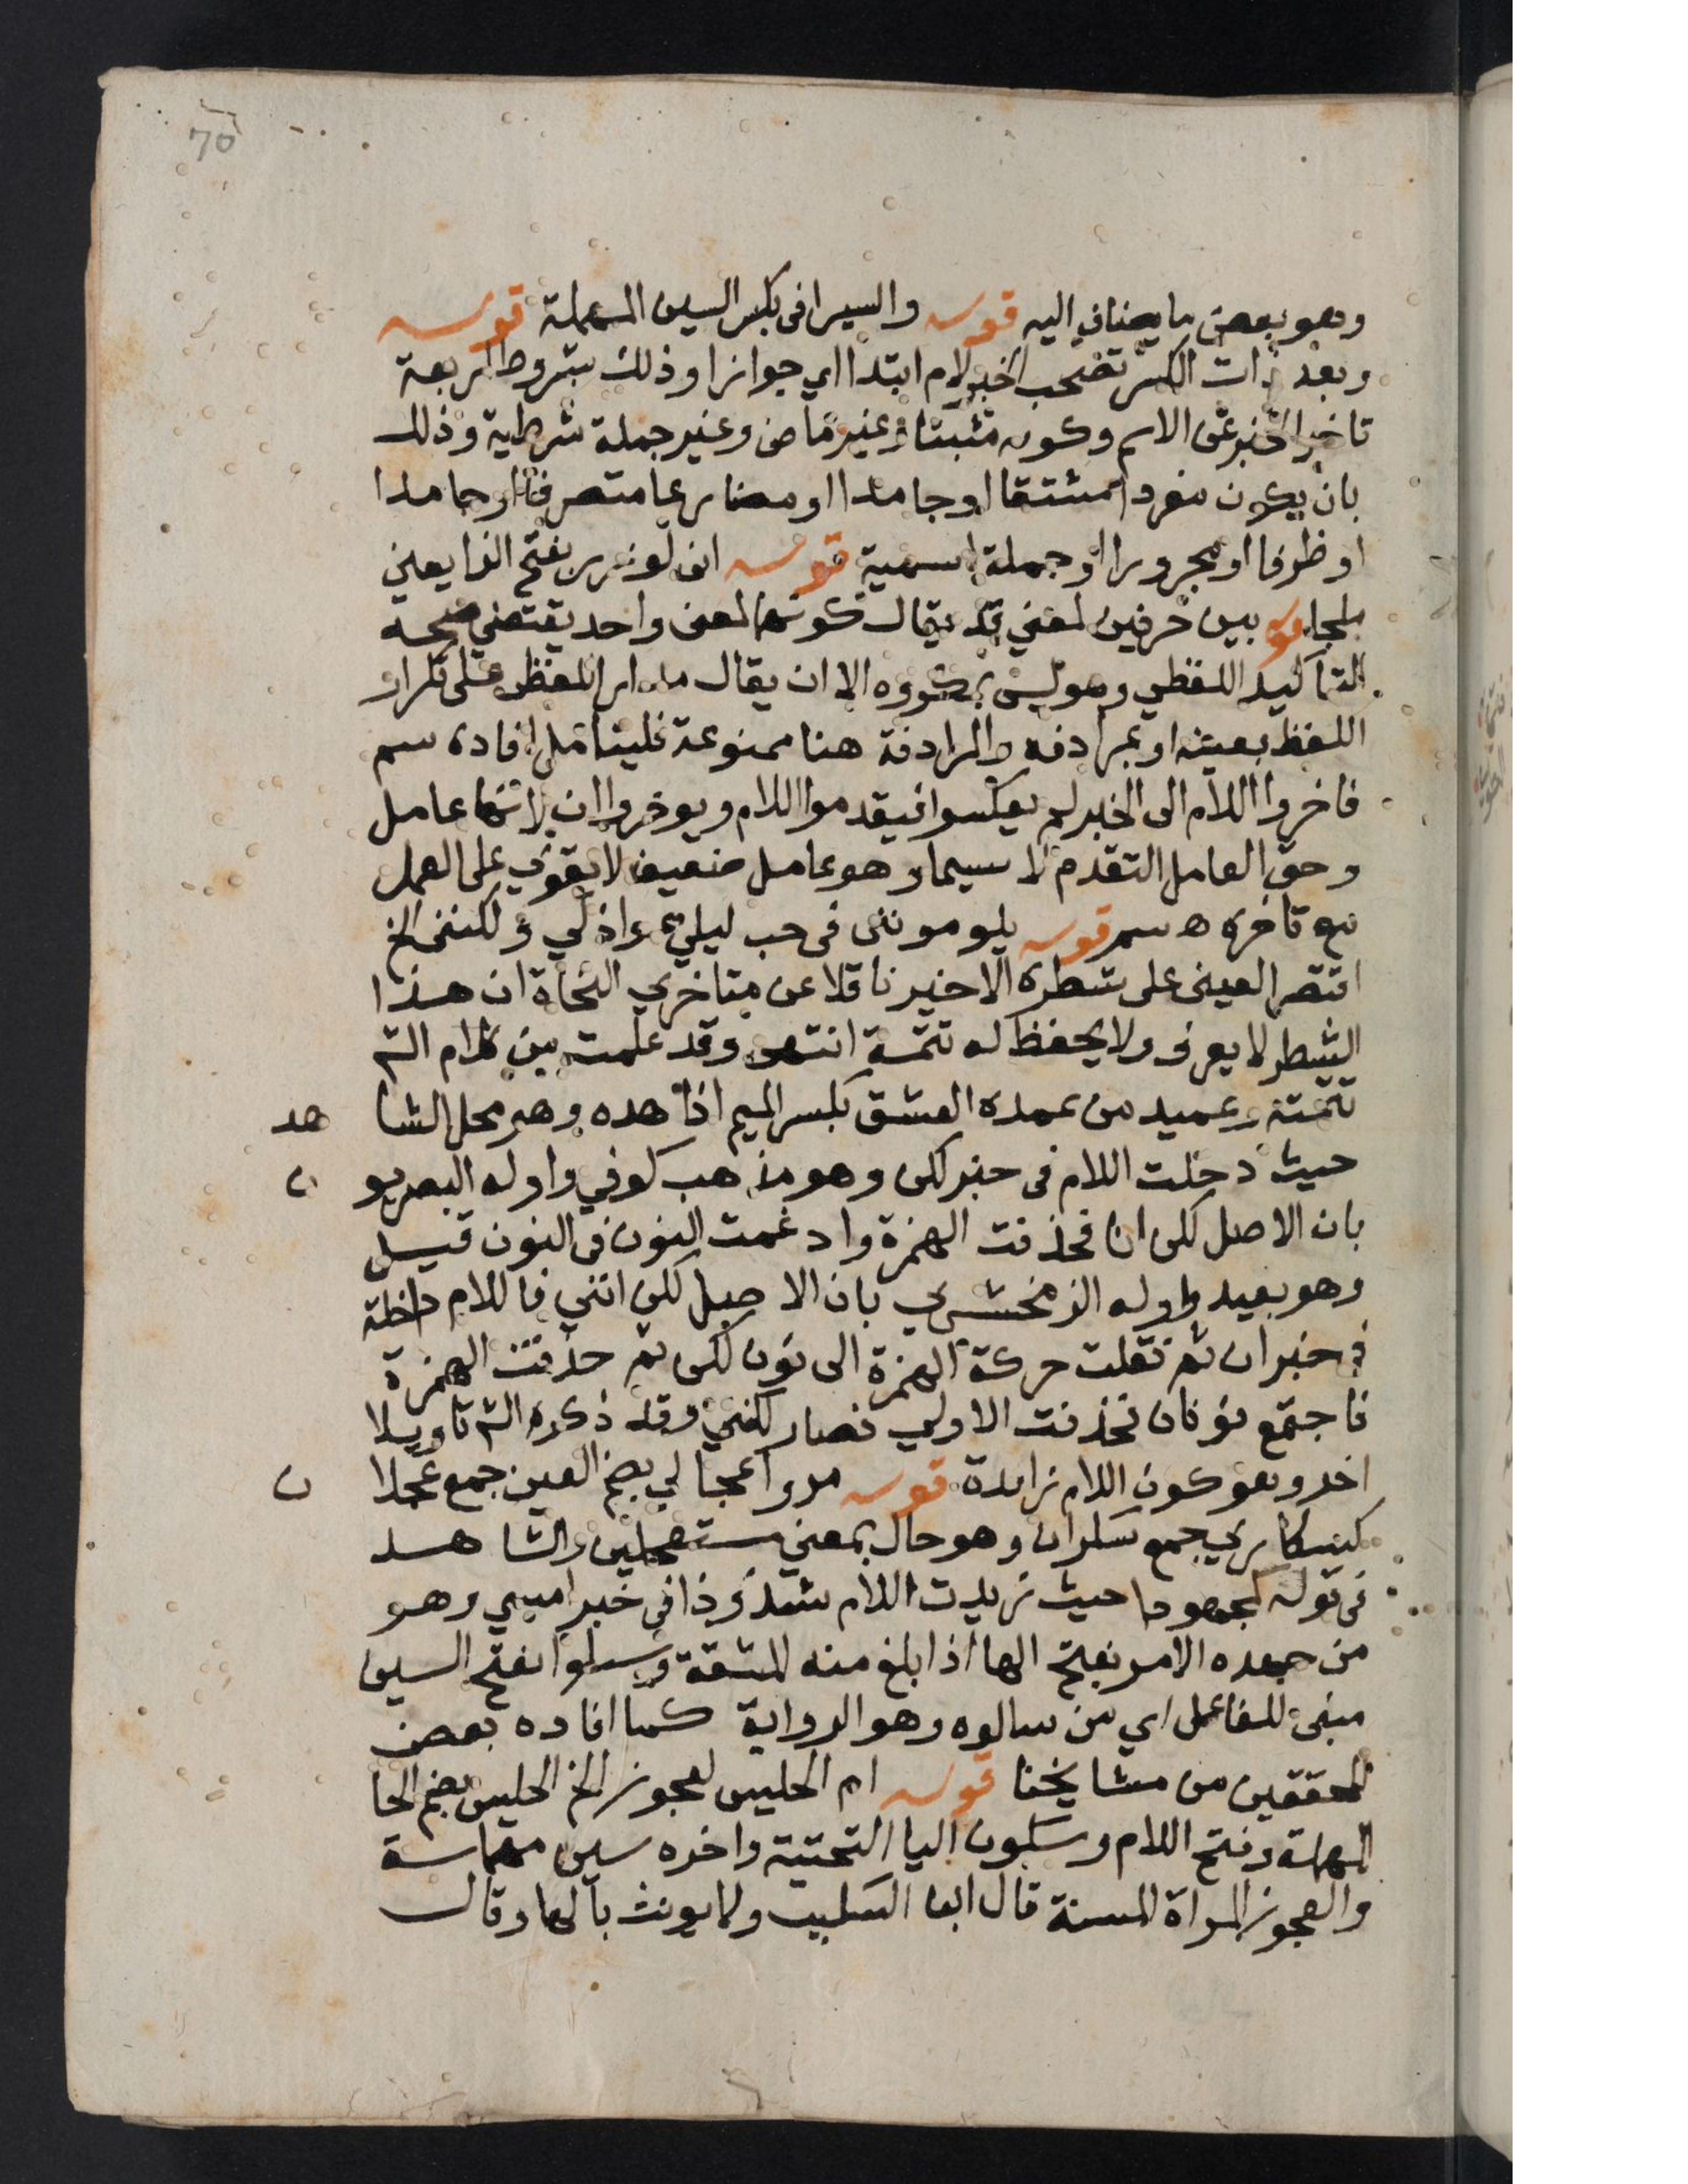 70
وهو بعض ما يضاف اليه قوله والسيرافى بكسر السين المهملة قوله
وبعد ذات الكسر تصحب الخبر لام ابتدا اي جوازا وذلك بشروط اربعة
تاخير الخبر عن الاسم وكونه مثبتا وغير ماض وغير جملة شرطية وذلك
بان يكون مفردا مشتقا او جامدا او مضارعا متصرفا او جامدا
او ظرفا او مجرورا او جملة اسمية قوله انى لوزر بفتح الزا يعني
ملجا قوله بين حرفين لمعني قد يقال كونهما لمعنى واحد يقتضي صحة
التاكيد اللفظي وهو ليس بمكروه الا ان يقال مدار اللفظى على تكرار
اللفظ بعينه او بمرادفه والمرادفة هنا ممنوعة فليتامل افاده سم
فاخروا اللام الى الخبر لم يعكسوا فيقدموا اللام ويوخروا ان لانها عامل
وحق العامل التقدم لا سيما وهو عامل ضعيف لا يقوي على العمل
مع تاخره ه سم قوله يلومونني فى حب ليلي عواذلي ولكننى الخ
اقتصر العينى على شطره الاخير ناقلا عن متاخري النحاة ان هذا
الشطر لا يعرف ولا يحفظ له تتمة انتهى وقد علمت من كلام الش
تتمته وعميد من عمده العشق بكسر الميم اذا هده وهو محل الشا هد
حيث دخلت اللام فى خبر لكن وهو مذهب كوفي واوله البصريو ن
بان الاصل لكن انا فحذفت الهمزة وادغمت النون فى النون قيل
وهو بعيد واوله الزمخشري بان الاصل لكن انني فاللام داخلة
في خبر ان ثم نقلت حركة الهمزة الى نون لكن ثم حذفت الهمزة
فاجتمع نونان فحذفت الاولي فصار لكنني وقد ذكره الش تاويلا
اخر وهو كون اللام زايدة قوله مروا عجالي بضم العين جمع عجلا ن
كسكاري جمع سكران وهو حال بمعني مستعجلين والشا هد
فى قوله لمجهودا حيث زيدت اللام شذوذا في خبر امسي وهو
من جهده الامر بفتح الها اذا بلغ منه المشقة وسالوا بفتح السين
مبنى للفاعل اي من سالوه وهو الرواية كما افاده بعض
المحققين من مشايخنا قوله ام الحليس لعجوز الخ الحليس بضم الحا
المهملة وفتح اللام وسكون اليا التحتية واخره سين مهملة
والعجوز المراة المسنة قال ابن السكيت ولا يونث بالها وقال